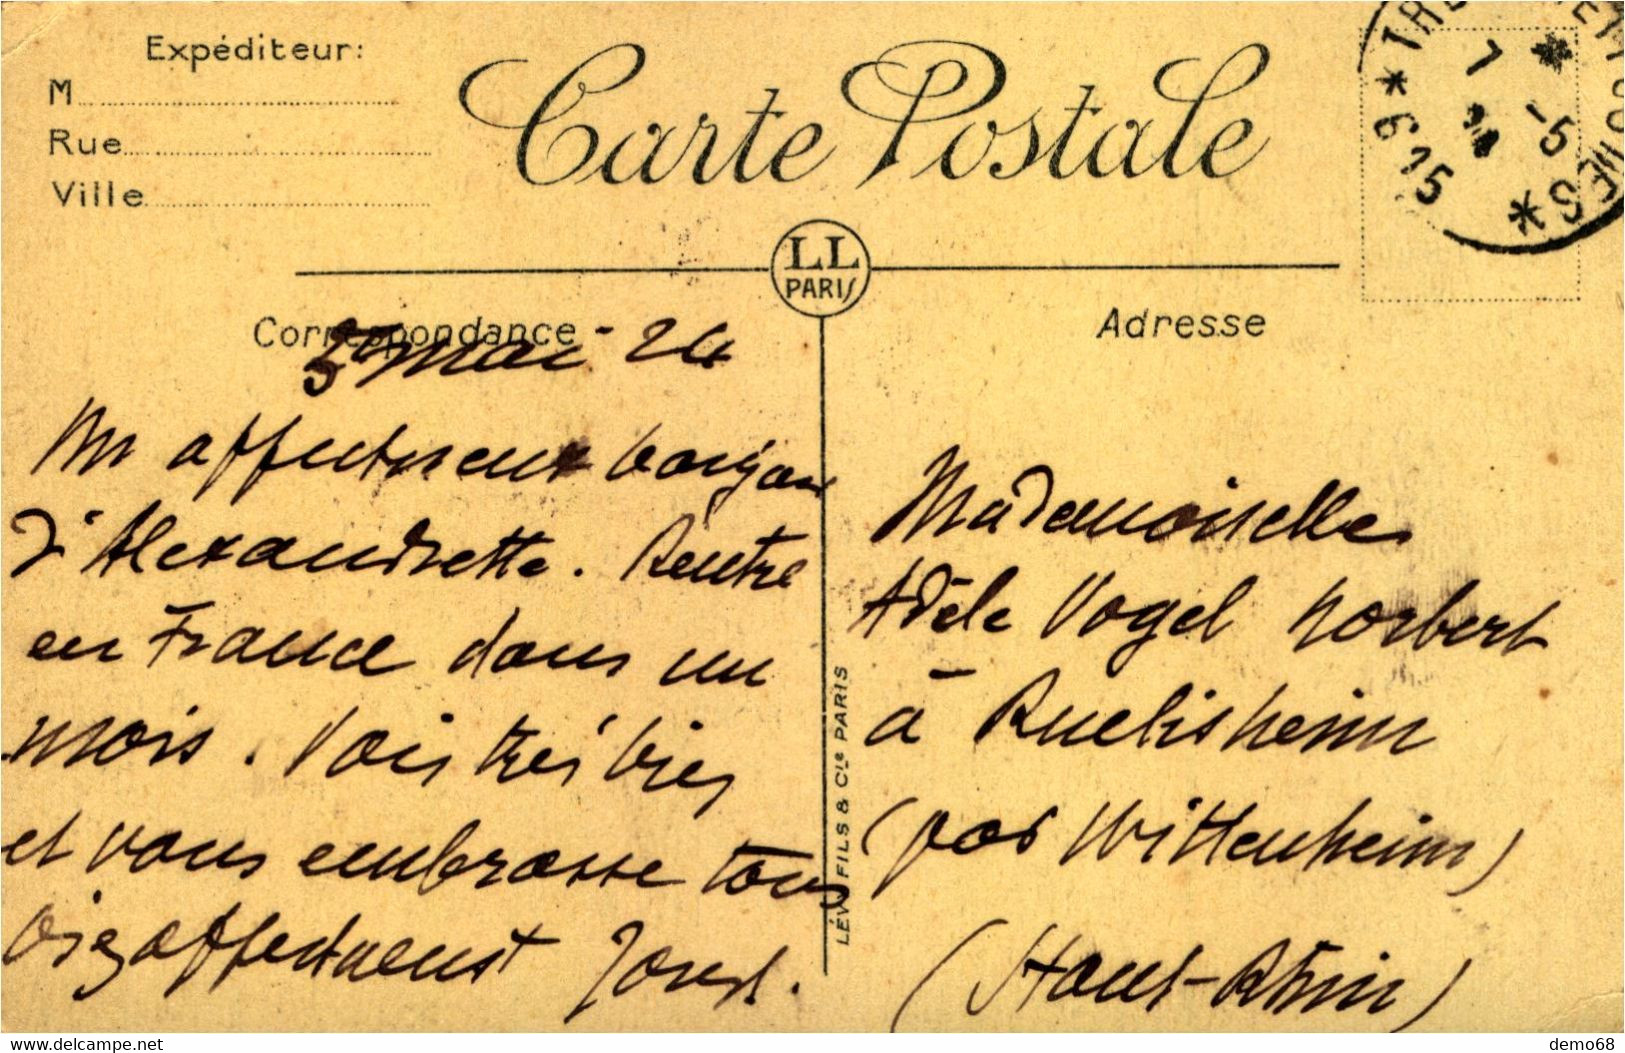 Expéditeur:
M
Rue
Ville
Carte Postale
* 6 15
7
-5
LL
PARIS
Correspondance
Adresse
mai - 24
Un affectueux bonjour
d'Alexandrette. Rentre
en France dans un
mois. Vais très bien
et vous embrasse tous
bien affectuent
Mademoiselle
Adèle Vogel Norbert
à Ruelisheim
(par Wittenheim)
(Haut-Rhin)
LÉVY FILS & Cie PARIS
www.delcampe.net
demo68